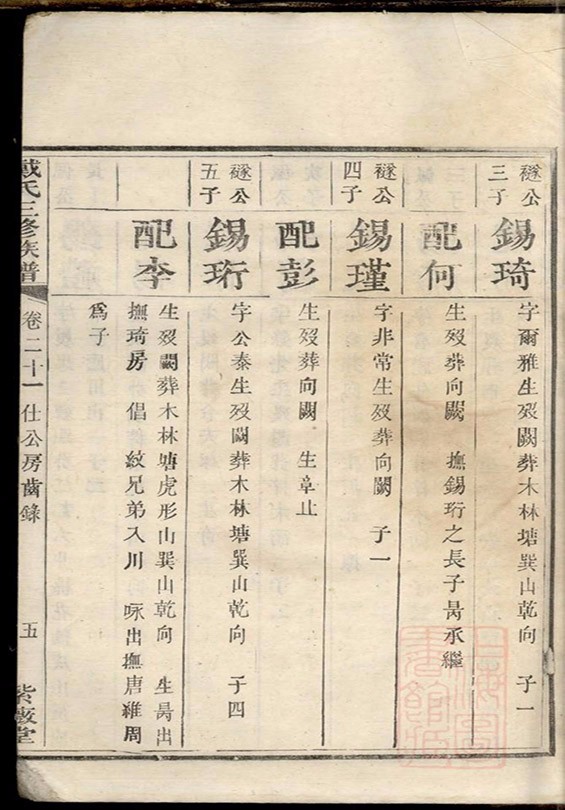 禭公三子
錫琦
字爾雅生歿闕葬木林塘巽山乾向 子一
配何
生歿葬向闕 撫錫珩之長子昺承繼
禭公四子
錫瑾
字非常生歿葬向闕 子一
配彭
生歿葬向闕 生 止
禭公五子
錫珩
字公泰生歿闕葬木林塘巽山乾向 子四
配李
生歿闕葬木林塘虎形山巽山乾向 生昺出
撫琦房 倡紋兄弟入川 咏出撫唐維周
爲子
戴氏三修族譜 卷二十一 仕公房齒錄 五 紫薇堂